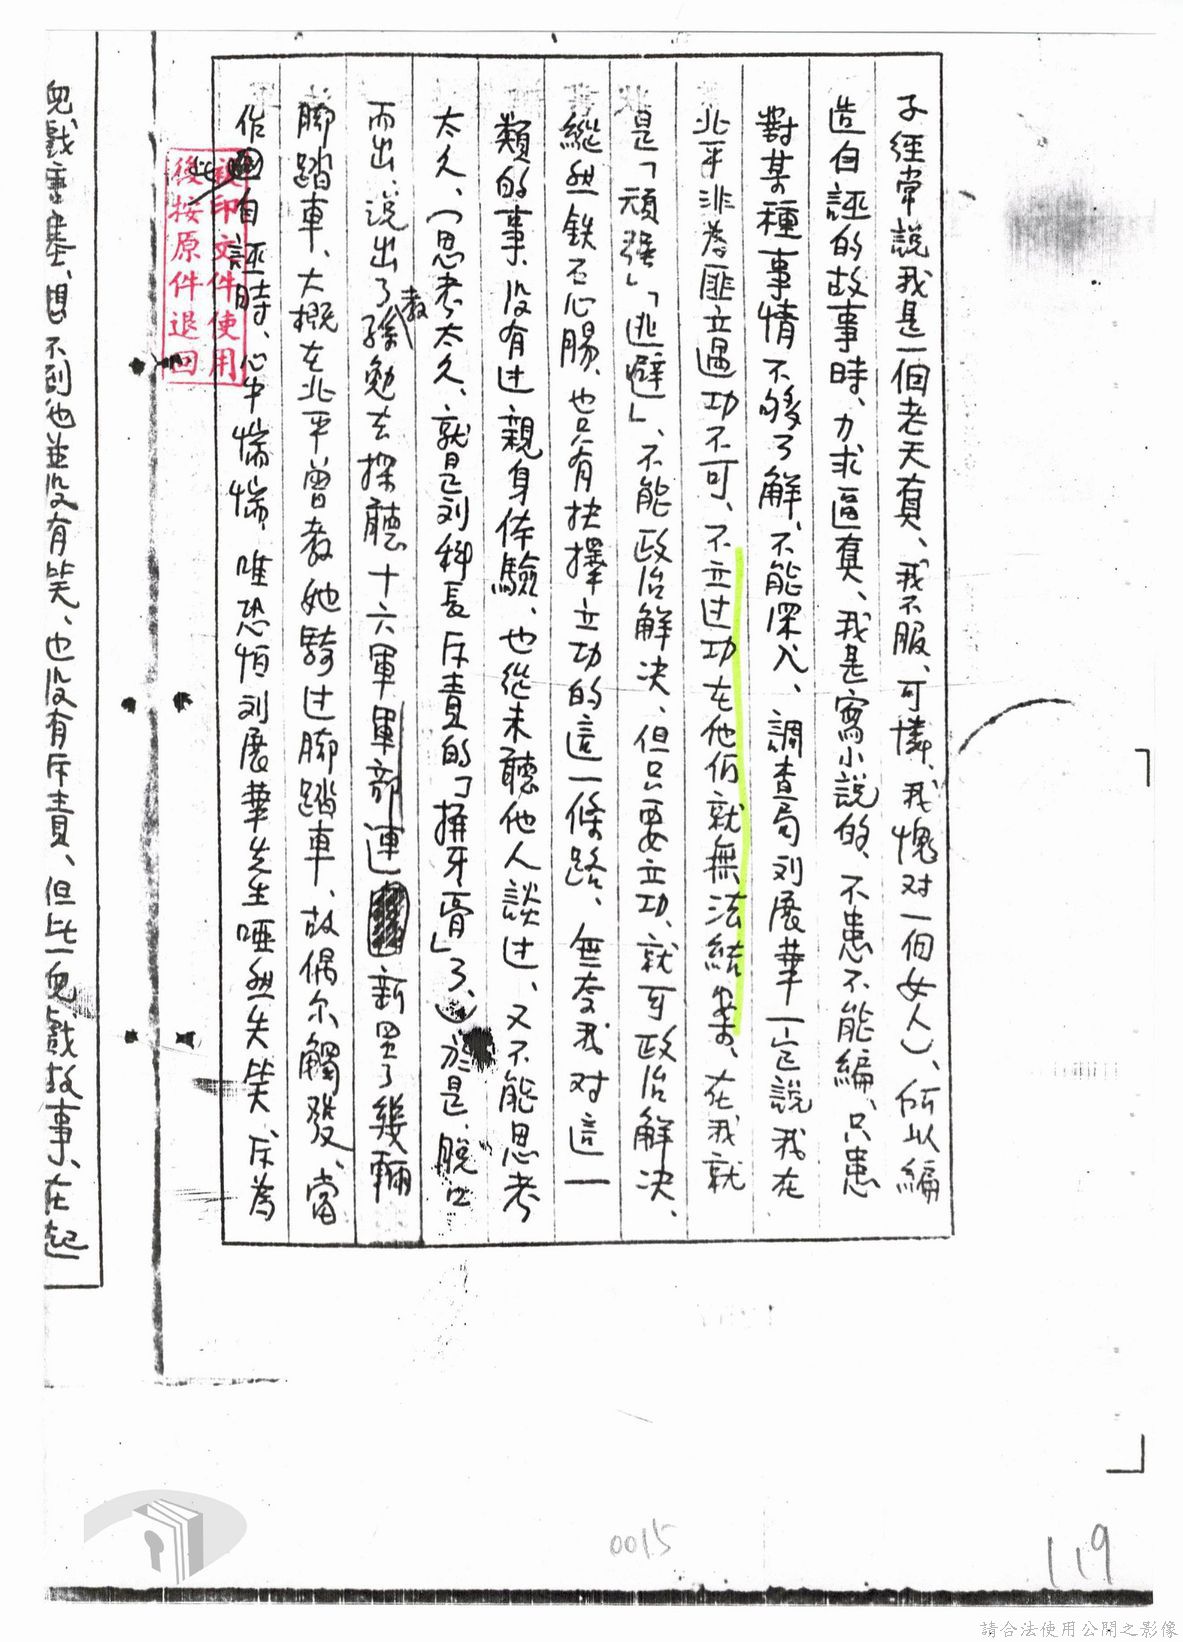 子經常說我是一個老天真、我不服、可憐、我愧对一個女人)、所以編
造自誣的故事時、力求逼真、我是寫小說的、不患不能編、只患
對某種事情不够了解、不能深入、調查局刘展華一定說我在
北平非為匪立過功不可、不立过功在他们就無法結案、在我就
是「頑强」「逃避」、不能政治解决、但只要立功、就可政治解决、
縱然鉄石心腸、也只有抉擇立功的這一條路、無奈我对這一
類的事、没有过親身体驗、也從未聽他人談过、又不能思考
太久、(思考太久、就是刘科長斥責的「擠牙膏」了、)於是、脫口
而出、說出了教孫勉去探聽十六軍軍部連新買了幾輛
脚踏車、大概在北平曾教她騎过脚踏車、故偶尔觸發、當
作此自誣時、心中惴惴、唯恐怕刘展華先生啞然失笑、斥為
兒戲重塞、想不到他並没有笑、也没有斥責、但此一兒戲故事、在起
複印文件使用
後按原件退回
0015
119
請合法使用公開之影像